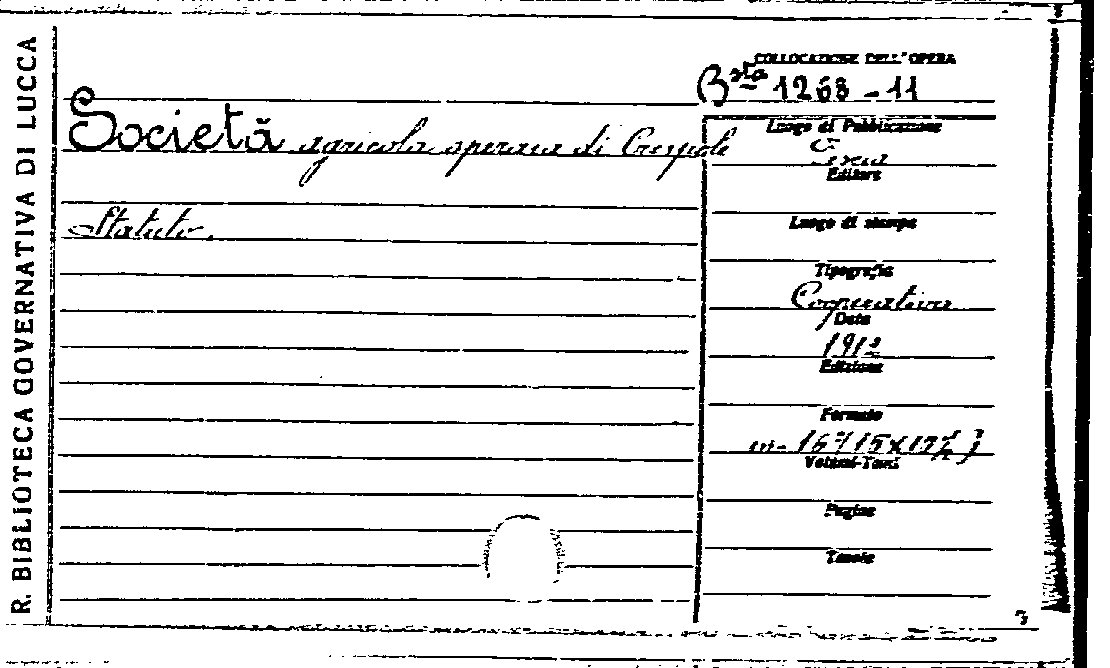 R. BIBLIOTECA GOVERNATIVA DI LUCCA
COLLOCAZIONE DELL'OPERA
Bsta 1263 - 11
Società agricola operaia di Crespole
Statuto.
Luogo di Pubblicazione
Pescia
Editore
Luogo di stampa
Tipografia
Cooperativa
Data
1912
Edizione
Formato
in-16°
Volumi-Tomi
Pagine
Tavole